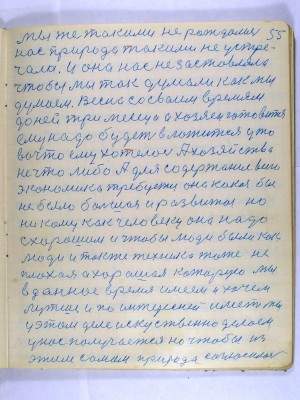 мы же такими не рождались 55
нас природа такими не устре-
чала. И она нас не заставляла
чтобы мы так думали как мы
думаем. Весна со своим временем
до ней три месяца а хозяин готовится
ему надо будет вложится у то
во что ему хотелось А хозяйства
не что либо А для содержание
экономика требуется она какая бы
не было большая и развитая но
ни кому как человеку она надо
с хорошим и чтобы люди были как
люди и также техника тоже не
плохая а хорошая которую мы
в данное время имеем а хочем
лутше и по интересней иметь мы
у этом деле искуственно делаем
у нас получается но чтобы из
этим самим природа согласилась